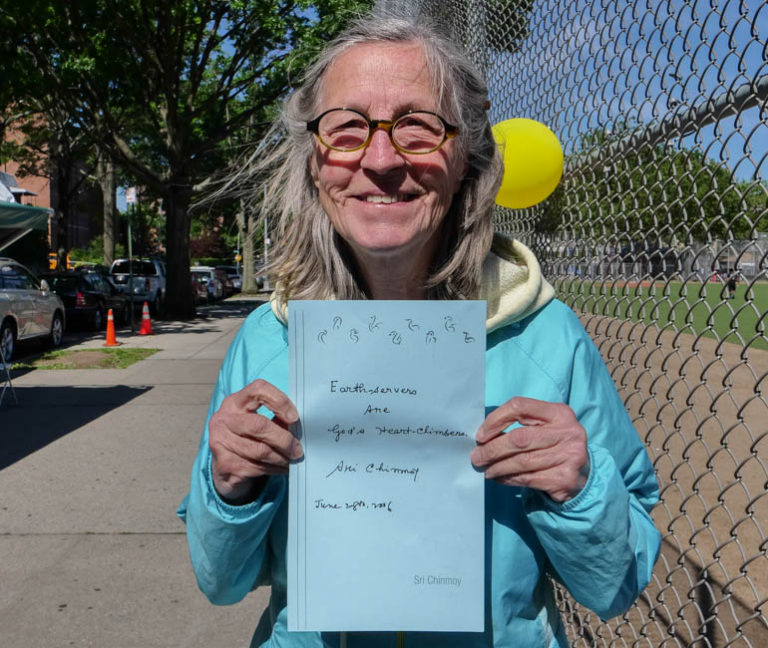 Earth-servers
Are
God's Heart-Climbers.
Sri Chinmoy
June 28th, 2006
Sri Chinmoy